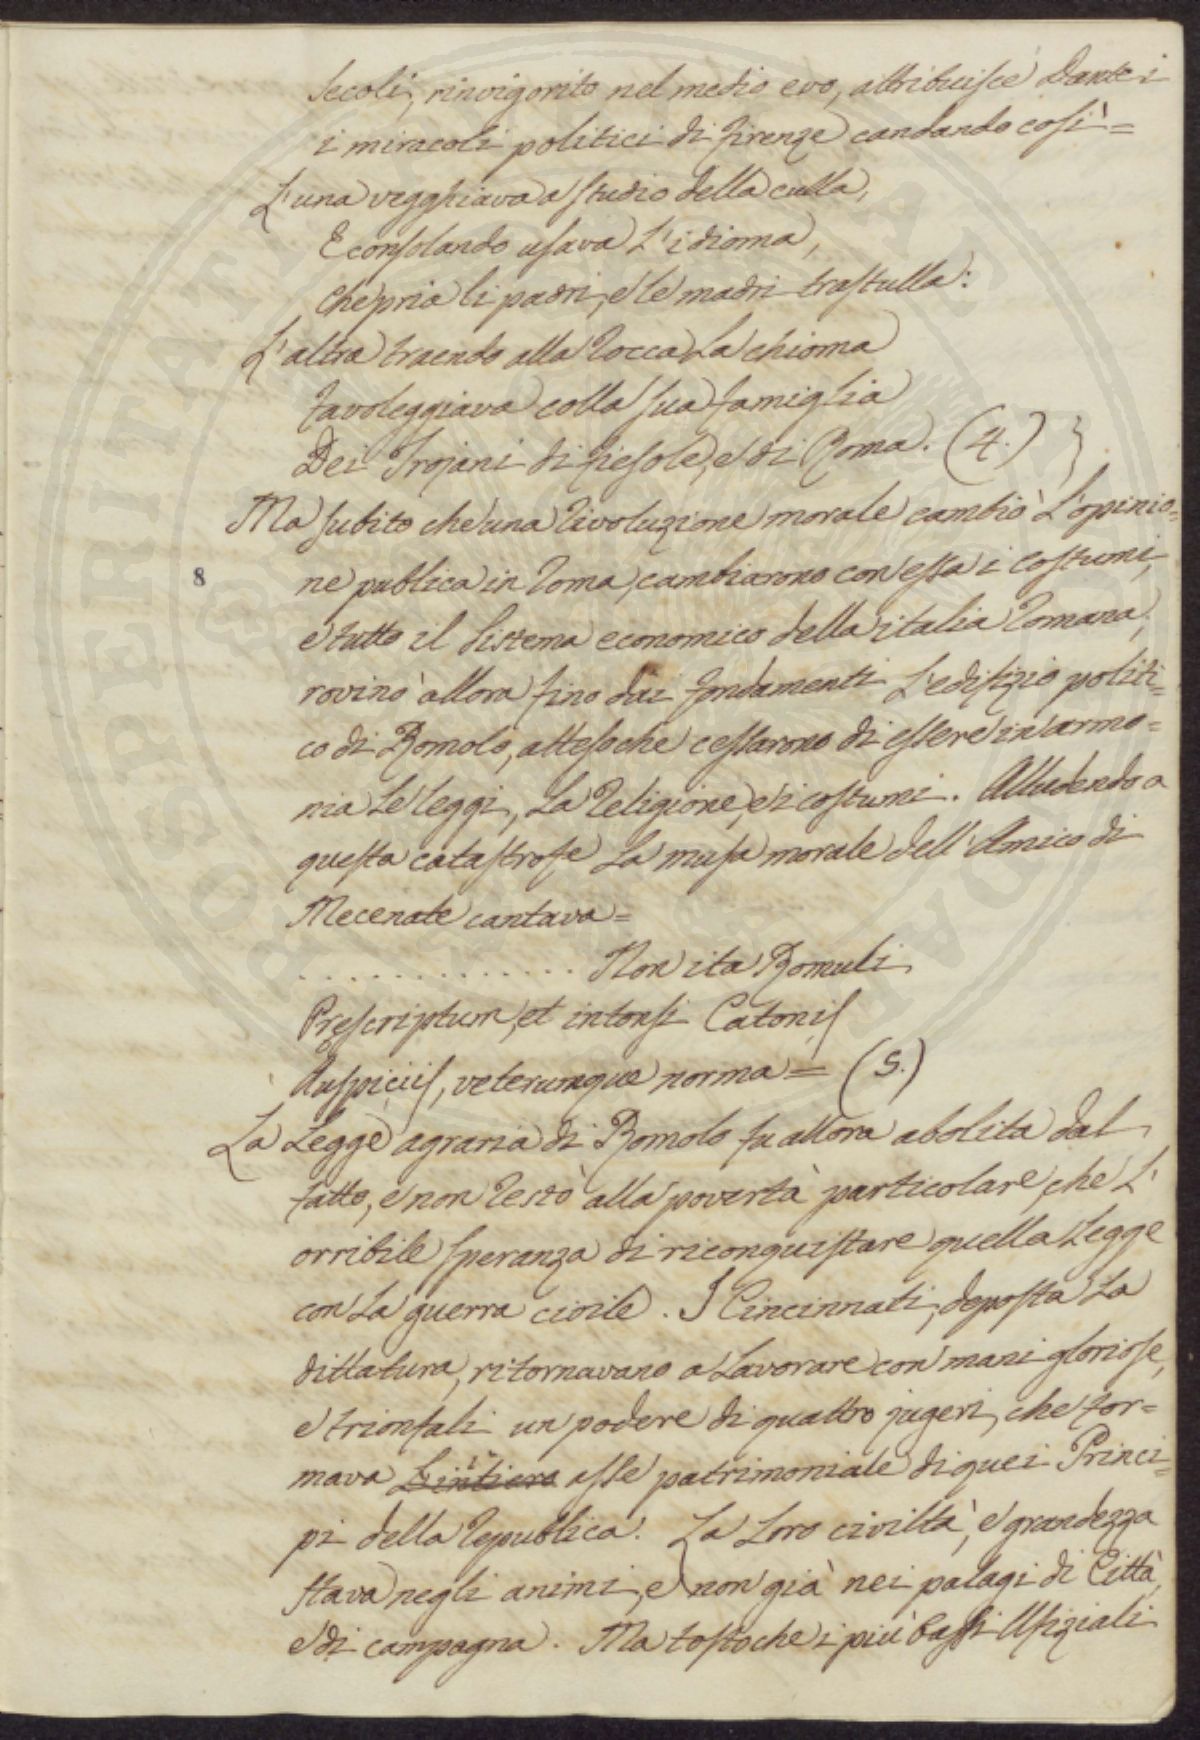 secoli, rinvigorito nel medio evo, attribuisce Dante i
i miracoli politici di Firenze candando così =
L'una vegghiava a studio della culla,
E consolando usava L'idioma,
Che pria li padri, e le madri trastulla:
L'altra traendo alla rocca La chioma
Favoleggiava colla sua famiglia
Dei Trojani di Fiesole, e di Roma. (4.) }
Ma subito che una rivoluzione morale cambiò L'opinio=
8 ne publica in Roma, cambiarono con essa i costumi,
e tutto il sistema economico della italia Romana;
rovinò allora fino dai fondamenti L'edifizio politi=
co di Romolo, attesoche cessarono di essere in armo=
nia Le Leggi, La religione, e i costumi. Alludendo a
questa catastrofe La musa morale dell'Amico di
Mecenate cantava =
. . . . . . . . . . . . . . Non ita Romuli
Prescriptum, et intonsi Catonis
Auspiciis, veterumque norma = (5.)
La Legge agraria di Romolo fu allora abolita dal
fatto, e non restò alla povertà particolare, che L'
orribile speranza di riconquistare quella Legge
con La guerra civile. I Cincinnati, deposta La
dittatura, ritornavano a Lavorare con mani gloriose,
e trionfali un podere di quattro jugeri, che for=
mava L'intiero asse patrimoniale di quei Princi=
pi della republica. La Loro civiltà, e grandezza
stava negli animi, e non già nei palagi di Città,
e di campagna. Ma tosto che i più bassi Ufiziali
PROSPERITATI